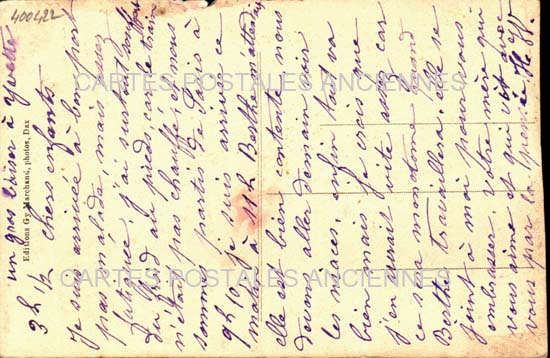 400422
un gros baiser à Yvette
Editions Gy Marchand, photos, Dax
3h 1/2 Chers enfants
Je suis arrivée à bon port
pas malade, mais assez
fatiguée j'ai surtout souffert
du froid au pieds, car le train
n'était pas chauffé, et nous
sommes partis de Paris à
9h 10, je suis arrivée ce
matin à 11h Berthe m'attendait
elle est bien contente nous
devons aller demain pour
les places enfin tout va
bien mais je crois que
j'en aurait vite assez car
ce sera monotone quand
Berthe travaillera, elle se
joint à moi pour vous
embrasser. votre mère qui
vous aime et qui vit avec
vous par la pensée
CARTES POSTALES ANCIENNES
CARTES POSTALES ANCIENNES